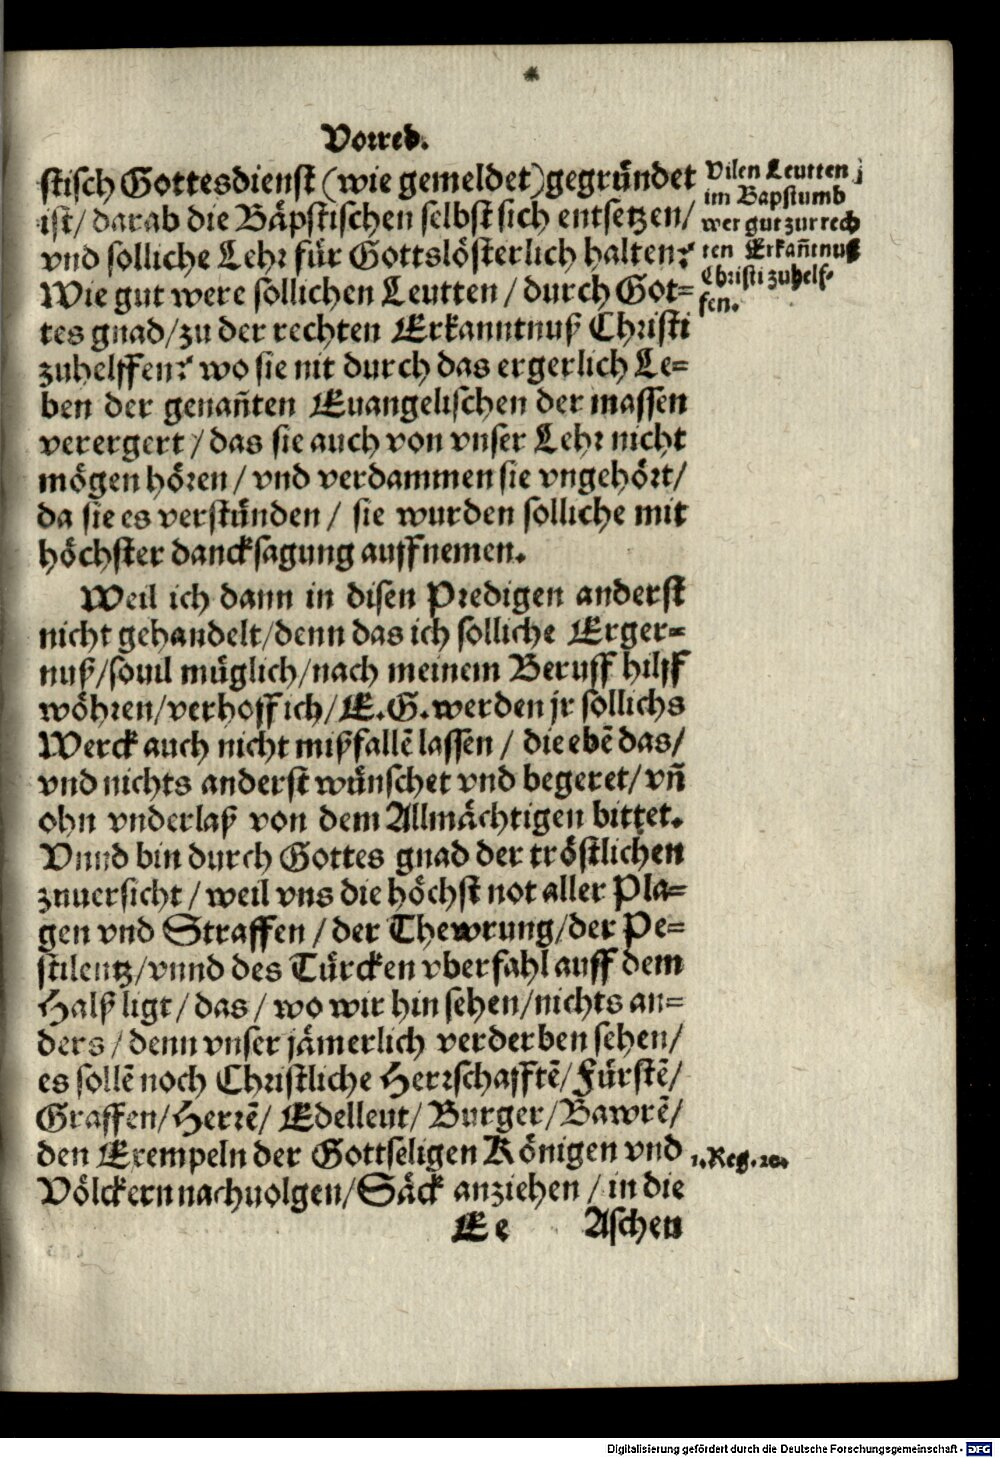 Vorred.
stisch Gottesdienst (wie gemeldet) gegründet
ist / darab die Bäpstischen selbst sich entsetzen /
vnd solliche Lehr für Gottslösterlich halten?
Wie gut were sollichen Leutten / durch Got=
tes gnad / zu der rechten Erkanntnuß Christi
zuhelffen? wo sie nit durch das ergerlich Le=
ben der genañten Euangelischen der massen
verergert / das sie auch von vnser Lehr nicht
mögen hören / vnd verdammen sie vngehört /
da sie es verstünden / sie wurden solliche mit
höchster dancksagung auffnemen.
Vilen Leutten
im Bapstumb
wer gut zur rech
ten Erkañtnuß
Christi zuhelf=
fen.
Weil ich dann in disen Predigen anderst
nicht gehandelt / denn das ich solliche Erger=
nuß / souil müglich / nach meinem Beruff hilff
wöhren / verhoff ich / E. G. werden jr sollichs
Werck auch nicht mißfallē lassen / die ebē das /
vnd nichts anderst wünschet vnd begeret / vñ
ohn vnderlaß von dem Allmächtigen bittet.
Vnnd bin durch Gottes gnad der tröstlichen
zuuersicht / weil vns die höchst not aller Pla=
gen vnd Straffen / der Thewrung / der Pe=
stilentz / vnnd des Türcken vberfahl auff dem
Halß ligt / das / wo wir hin sehen / nichts an=
ders / denn vnser jämerlich verderben sehen /
es sollē noch Christliche Herrschafftē / Fürstē /
Graffen / Herrē / Edelleut / Burger / Bawrē /
den Exempeln der Gottseligen Königen vnd
Völckern nachuolgen / Säck anziehen / in die
1. Reg. 20.
Ee Aschen
Digitalisierung gefördert durch die Deutsche Forschungsgemeinschaft - DFG